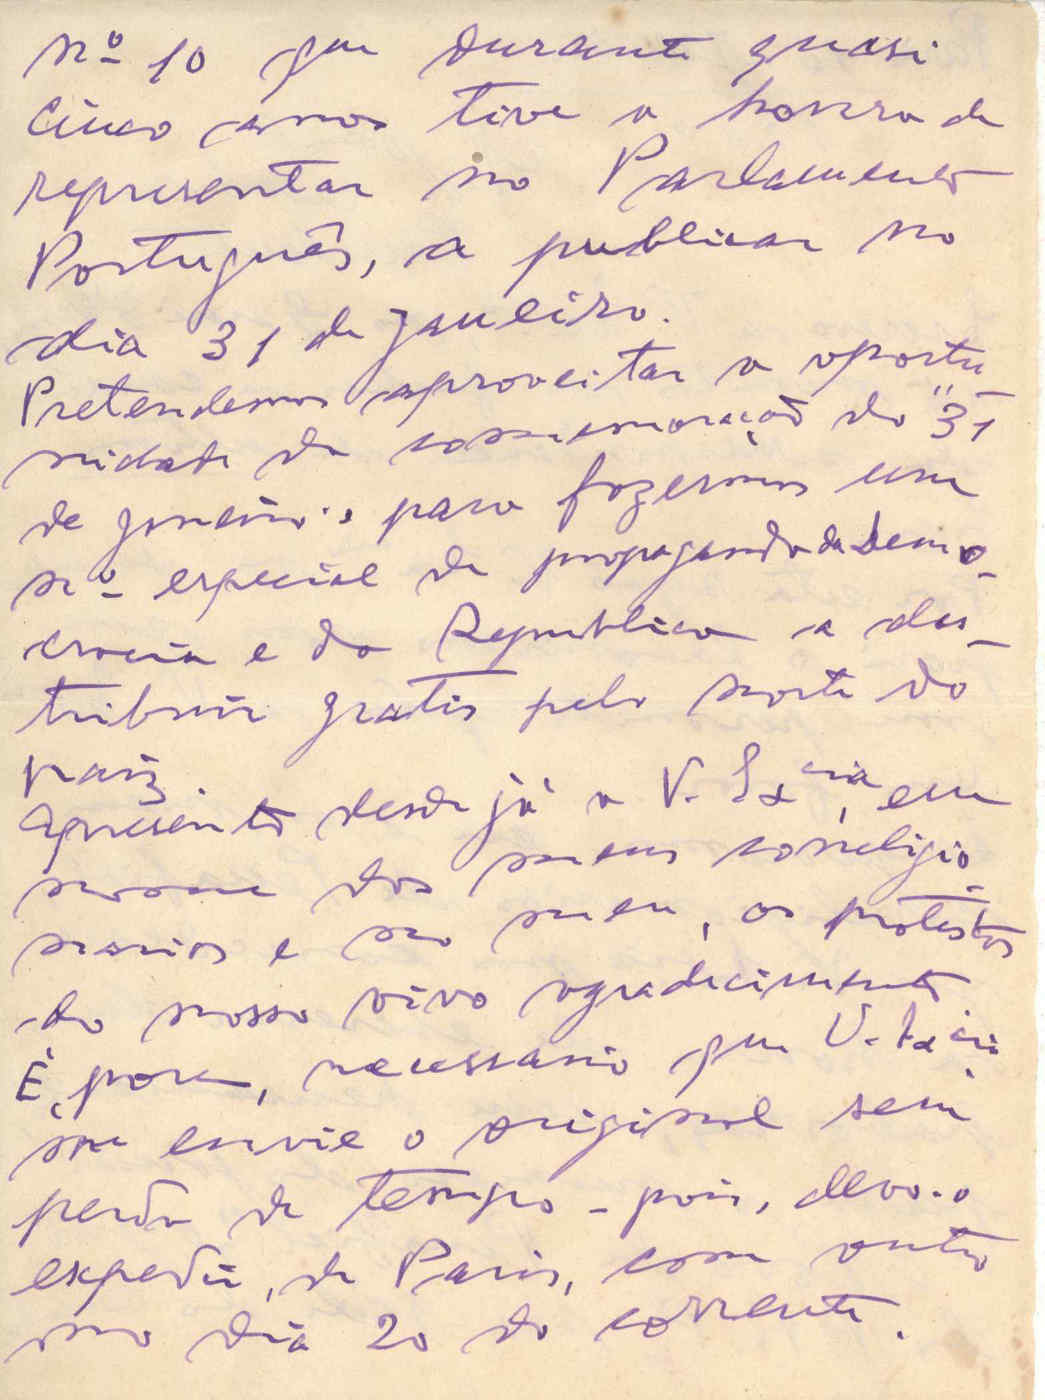 nº 10 que durante quasi
cinco anos tive a honra de
representar no Parlamento
Português, a publicar no
dia 31 de Janeiro.
Pretendemos aproveitar a oportu
nidade da comemoração do "31
de Janeiro" para fazermos um
nº especial de propaganda da Demo-
cracia e da Republica a dis-
tribuir gratis pelo norte do
paiz.
Apresento desde já a V. Excia, em
nome dos meus correligio-
narios e no meu, os protestos
do nosso vivo agradecimento.
É, porem, necessario que V. Excia
me envie o original sem
perda de tempo - pois, devo-o
expedir, de Paris, com outro
no dia 20 do corrente.